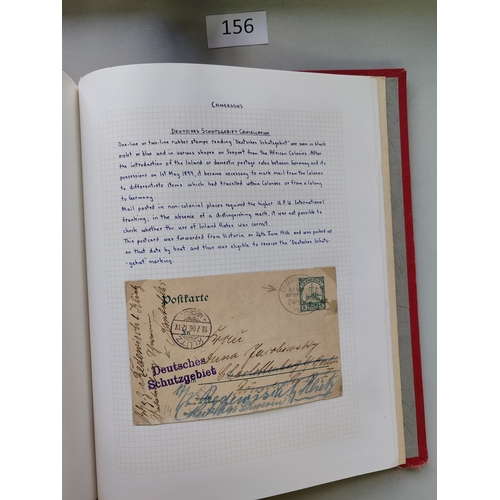 156
CAMEROONS
DEUTSCHES SCHUTZGEBIET CANCELLATION
One-line or two-line rubber stamps reading "Deutsches Schutzgebiet" are seen in black
violet or blue and in various shapes on Seapost from the African Colonies. After
the introduction of the inland or domestic postage rates between Germany and its
possessions on 1st May 1899, it became necessary to mark mail from the Colonies
to differentiate items which had travelled within Colonies or from a Colony
to Germany.
Mail posted in non-colonial places required the higher U.P.U. International
franking; in the absence of a distinguishing mark, it was not possible to
check whether the use of Inland Rates was correct.
This postcard was forwarded from Victoria on 24th June 1906 and was picked up
on that date by boat and thus was eligible to receive the 'Deutsches Schutz-
-gebiet' marking.
Postkarte
KLÜTZ
Frau
Deutsches
Schutzgebiet